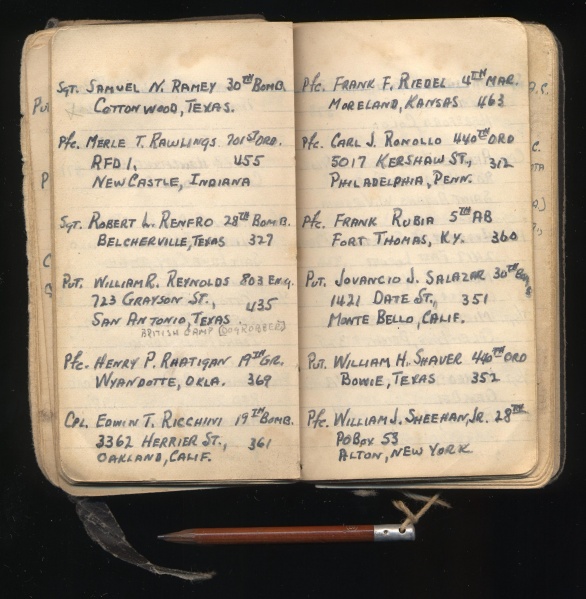 Sgt. Samuel N. Ramey 30TH Bomb.
Cottonwood, Texas.
Pfc. Merle T. Rawlings 701ST Ord.
RFD 1, 455
New Castle, Indiana
Sgt. Robert L. Renfro 28TH Bomb.
Belcherville, Texas 327
Pvt. William R. Reynolds 803 Eng.
723 Grayson St., 435
San Antonio, Texas
British Camp
Pfc. Henry P. Rhatigan 19TH Gr.
Wyandotte, Okla. 369
Cpl. Edwin T. Ricchini 19TH Bomb.
3362 Herrier St., 361
Oakland, Calif.
Pfc. Frank F. Riedel 4TH Mar.
Moreland, Kansas 463
Pfc. Carl J. Ronollo 440TH Ord
5017 Kershaw St., 312
Philadelphia, Penn.
Pfc. Frank Rubia 5TH AB
Fort Thomas, Ky. 360
Pvt. Jovancio J. Salazar 30TH
1421 Date St., 351
Monte Bello, Calif.
Pvt. William H. Shaver 440TH Ord
Bowie, Texas 352
Pfc. William J. Sheehan, Jr. 28TH
PO Box 53
Alton, New York